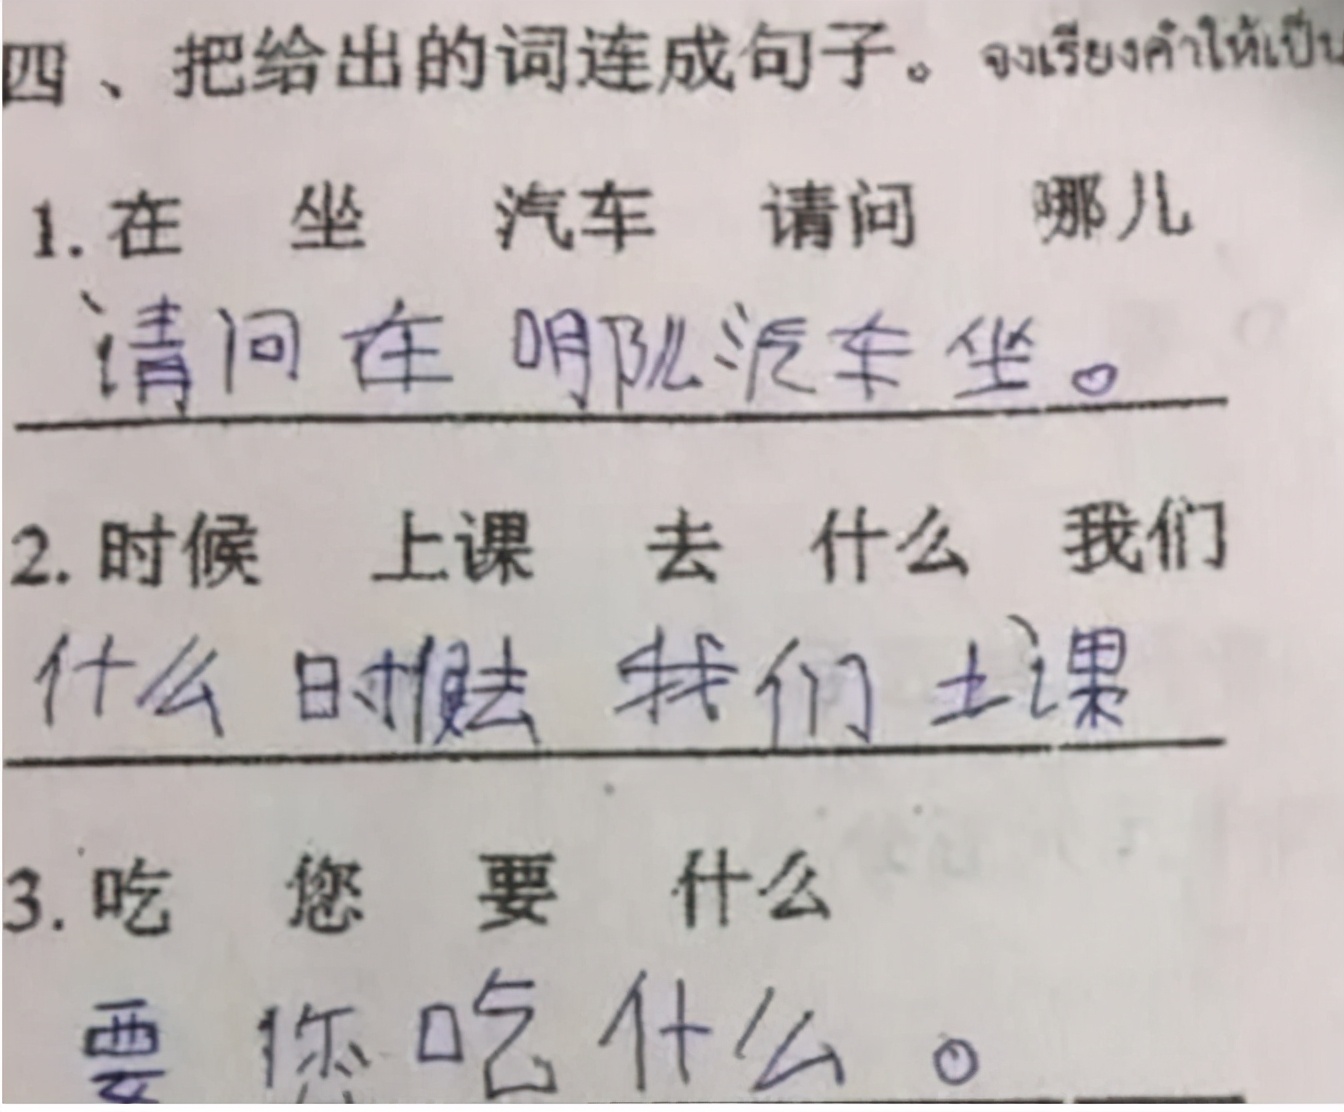 四、把给出的词连成句子。 จงเรียงคำให้เป็น
1. 在 坐 汽车 请问 哪儿
请问 在 哪儿 汽车 坐。
2. 时候 上课 去 什么 我们
什么 时候去 我们 上课
3. 吃 您 要 什么
要 您 吃 什么。